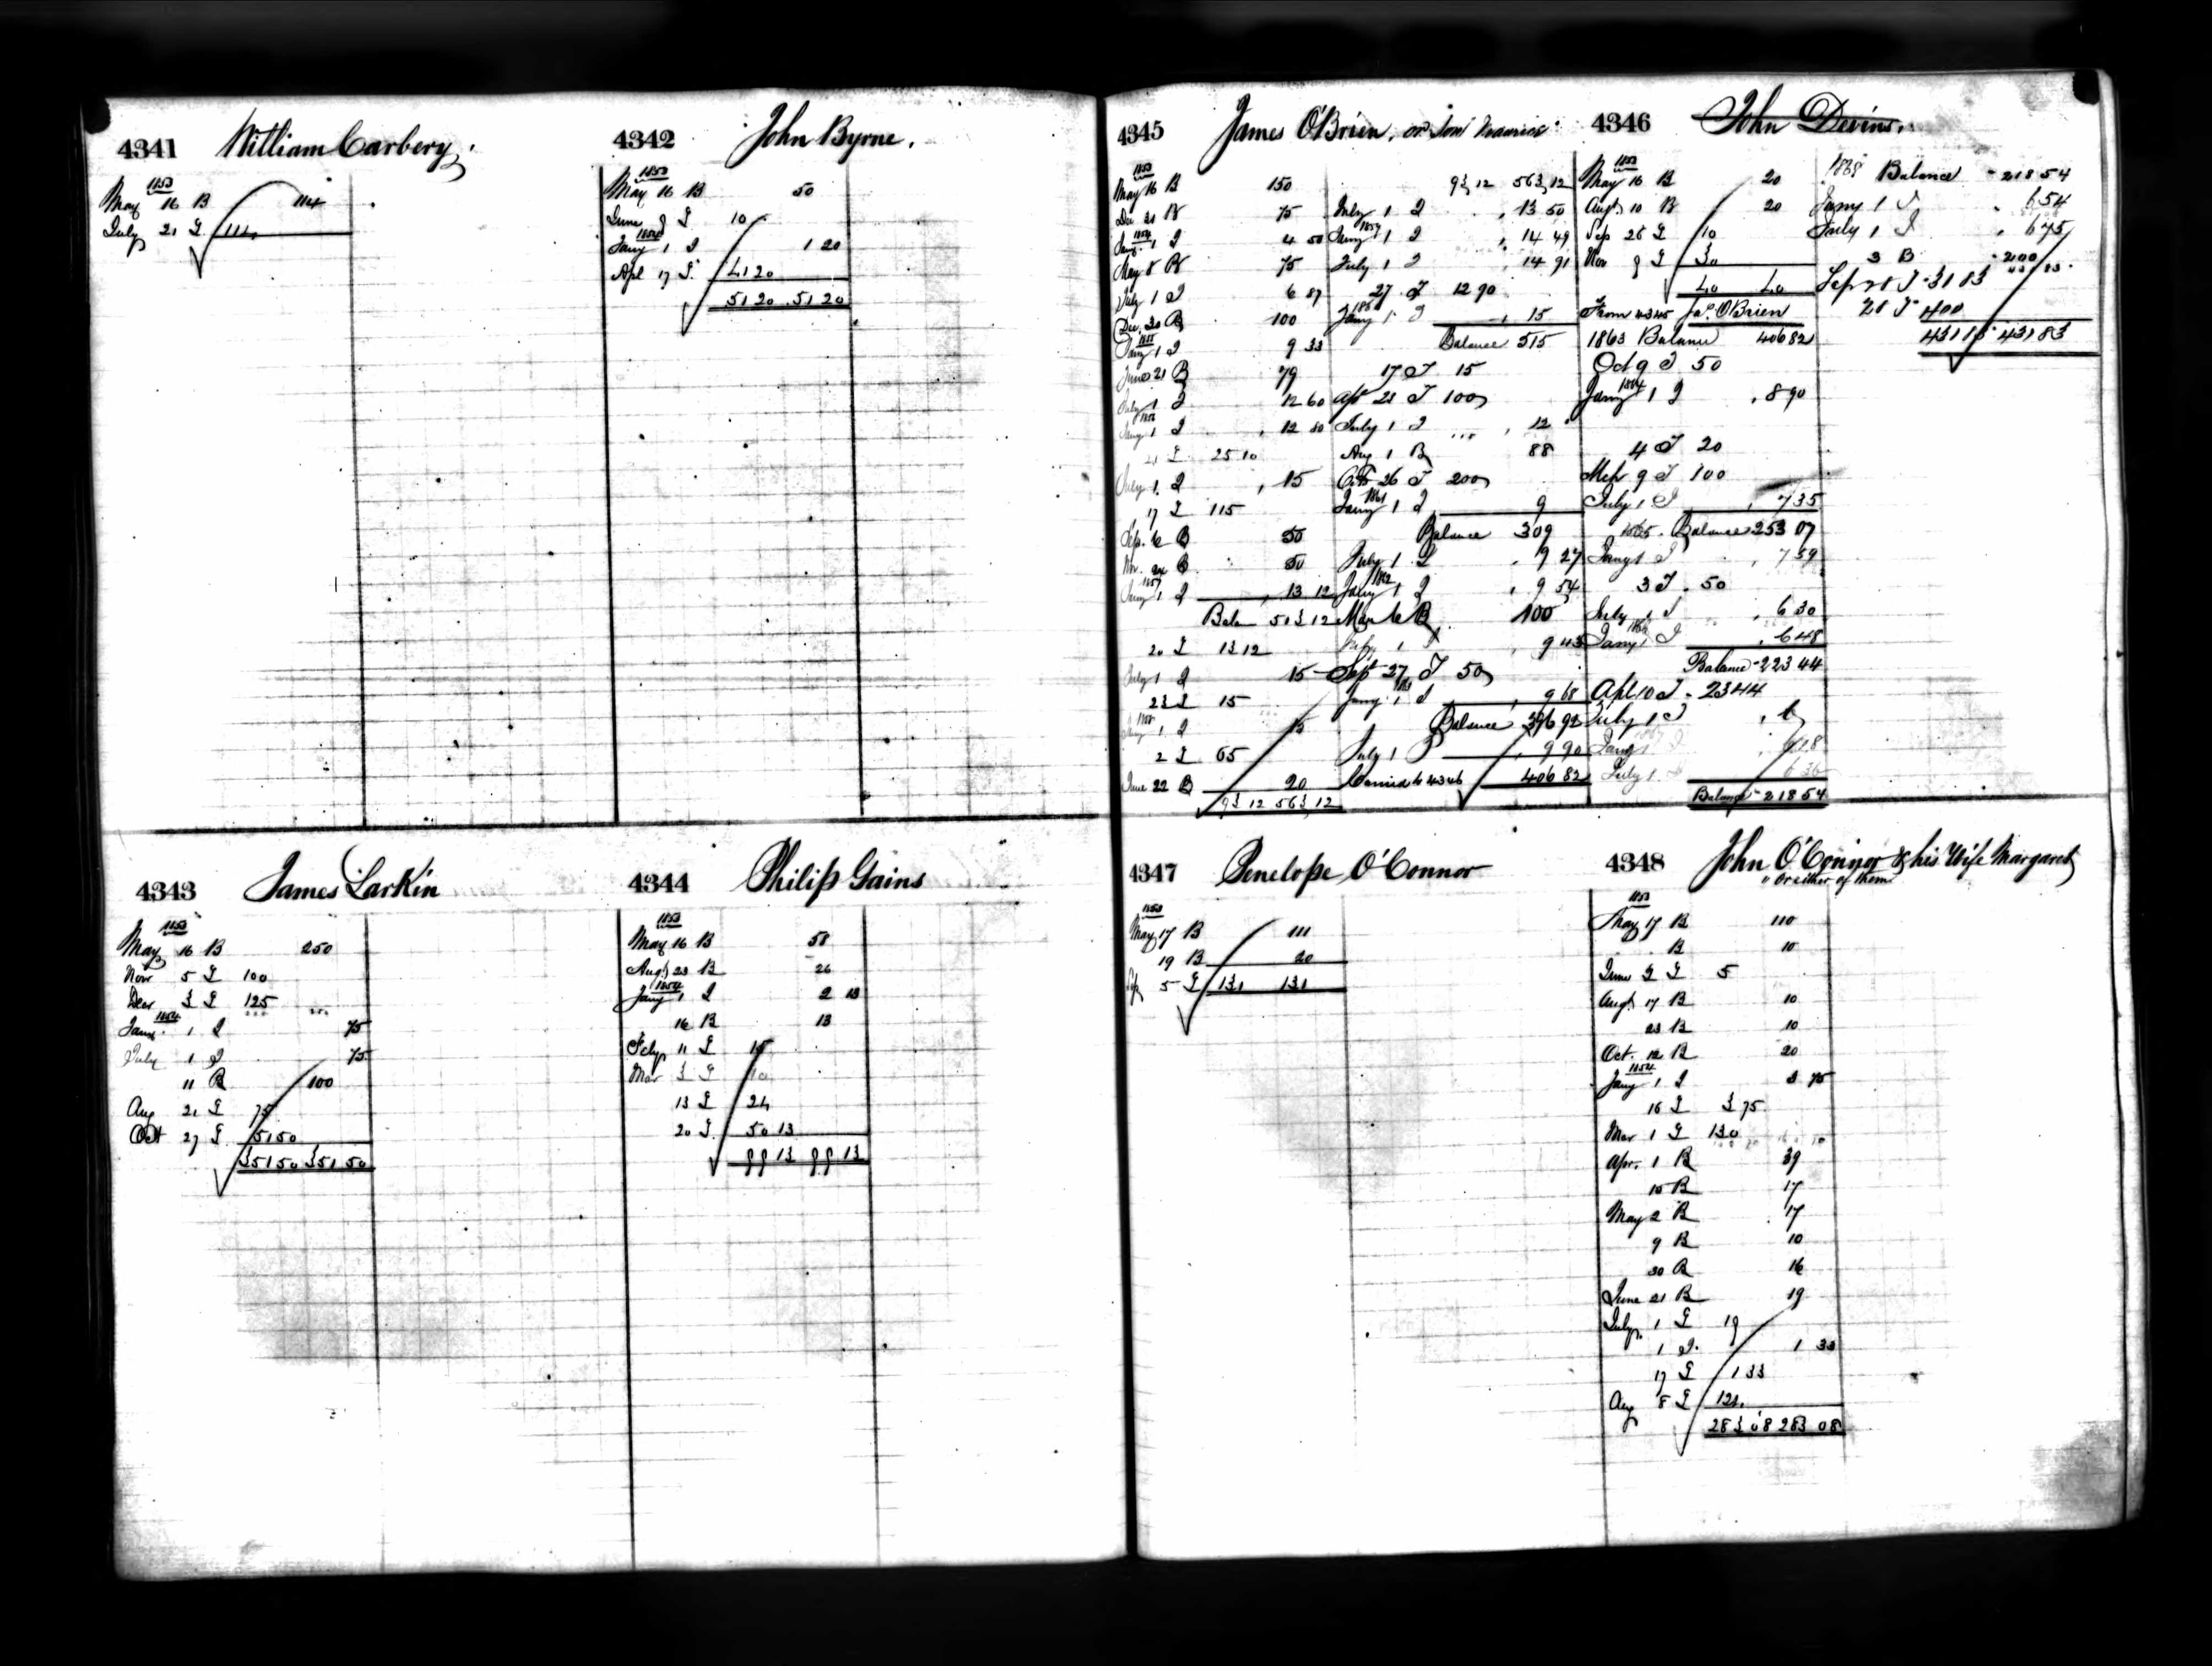 4341 William Carbery.
1853
May 16 B 114
July 21 T 114
4342 John Byrne.
1853
May 16 B 50
June 9 T 10
1854
Jany 1 I 1 20
Apl 17 T 41 20
51 20 51 20
4343 James Larkin
1853
May 16 B 250
Novr 5 T 100
Decr 3 T 125
1854
Jany 1 I 75
July 1 I 75
11 B 100
Aug 21 T 75
Oct 27 T 51 50
351 50 351 50
4344 Philip Gains
1853
May 16 B 58
Augt 23 B 26
1854
Jany 1 I 2 13
16 B 13
Feby 11 T 15
Mar 3 T 10
13 T 24
20 T 50 13
99 13 99 13
4345 James O'Brien, or Son Maurice
1853
May 16 B 150
Dec 31 B 75
1854
Jany 1 I 4 50
May 8 B 75
July 1 I 6 87
Dec. 30 B 100
1855
Jany 1 I 9 33
June 21 B 79
July 1 I 12 60
1856
Jany 1 I 12 80
21 T 25 10
July 1 I 15
17 T 115
Sep. 6 B 50
Nov. 24 B 50
1857
Jany 1 I 13 12
Balan 513 12
20 T 13 12
July 1 I 15
23 T 15
1858
Jany 1 I 15
2 T 65
June 22 B 20
93 12 563 12
93 12 563 12
July 1 I 13 50
1859
Jany 1 I 14 49
July 1 I 14 91
27 T 12 90
1860
Jany 1 I 15
Balance 515
17 T 15
Ap 23 T 100
July 1 I 12
Aug 1 B 88
Oct 26 T 200
1861
Jany 1 I 9
Balance 309
July 1 I 9 27
1862
Jany 1 I 9 54
Mar 6 B 100
July 1 I 9 43
Sept 27 T 50
1863
Jany 1 I 9 68
Balance 396 92
July 1 I 9 90
Carried to 4346 406 82
4346 John Devins.
1853
May 16 B 20
Augt 10 B 20
Sep 28 T 10
Nov 9 T 30
40 40
From 4345 Jas. O'Brien
1863 Balance 406 82
Oct 9 T 50
1864
Jany 1 I 8 90
4 T 20
Mch 9 T 100
July 1 I 7 35
1865. Balance 253 07
Jany 1 I 7 59
3 T 50
July 1 I 6 30
1866
Jany 1 I 6 48
Balance 223 44
Apl 10 T 23 44
July 1 I 6
1867
Jany 1 I 6 18
July 1 I 6 36
Balance 218 54
1868 Balance 218 54
Jany 1 I 6 54
July 1 I 6 75
3 B 200
Sep 28 T 31 83
28 T 400
431 83 431 83
4347 Penelope O'Connor
1853
May 17 B 111
19 B 20
Sep 5 T 131 131
4348 John O'Connor & his Wife Margaret
"or either of them"
1853
May 17 B 110
B 10
June 2 T 5
Augt 17 B 10
23 B 10
Oct. 12 B 20
1854
Jany 1 I 3 75
16 T 3 75
Mar 1 T 130
Apr. 1 B 39
10 B 17
May 2 B 17
9 B 10
30 B 16
June 21 B 19
July 1 T 19
1 I 1 33
17 T 1 33
Aug 8 T 124
283 08 283 08